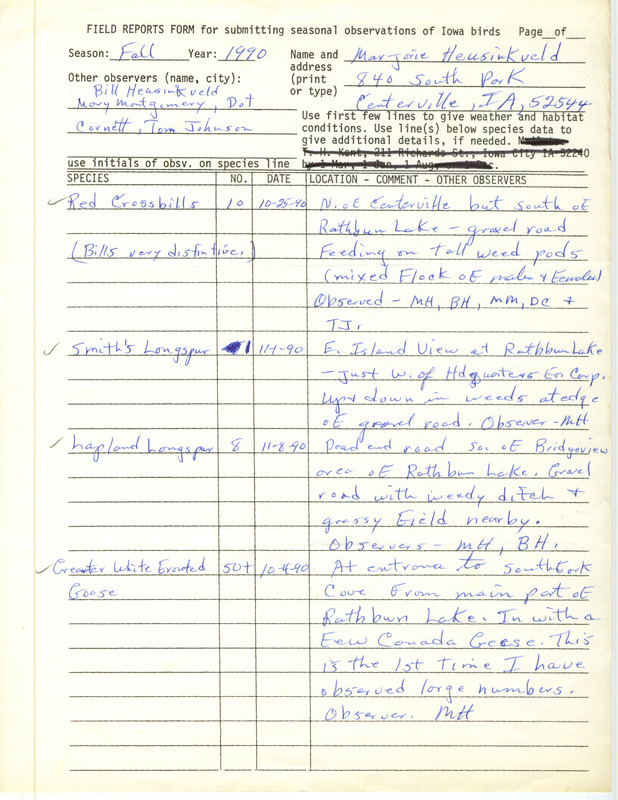 FIELD REPORTS FORM for submitting seasonal observations of Iowa birds Page__of__
Season: Fall Year: 1990 Name and Marjorie Heusinkveld
address 840 South Park
(print
or type) Centerville, IA, 52544
Other observers (name, city):
Bill Heusinkveld
Mary Montgomery, Dot
Cornett, Tom Johnson
Use first few lines to give weather and habitat
conditions. Use line(s) below species data to
give additional details, if needed.
T. H. Kent, 211 Richards St., Iowa City IA 52240
use initials of obsv. on species line by 1 Mar, 1 Jun, 1 Aug,
SPECIES NO. DATE LOCATION - COMMENT - OTHER OBSERVERS
✓ Red Crossbills 10 10-25-90 N. of Centerville but south of
Rathbun Lake - gravel road
(Bills very distintive.) Feeding on tall weed pods
(mixed Flock of males & Females)
Observed - MH, BH, MM, DC &
TJ.
✓ Smith's Longspur 1 11-1-90 E. Island View at Rathbun Lake
- Just W. of Hdquaters For Corp.
Up & down in weeds at edge
of gravel road. Observer - MH
✓ Lapland Longspur 8 11-8-90 Dead end road so. of Bridgeview
area of Rathbun Lake. Gravel
road with weedy ditch &
grassy Field nearby.
Observers - MH, BH.
✓ Greater White Fronted 50+ 10-4-90 At entrance to South Fork
Goose Cove From main part of
Rathbun Lake. In with a
Few Canada Geese. This
is the 1st Time I have
observed large numbers.
Observer. MH